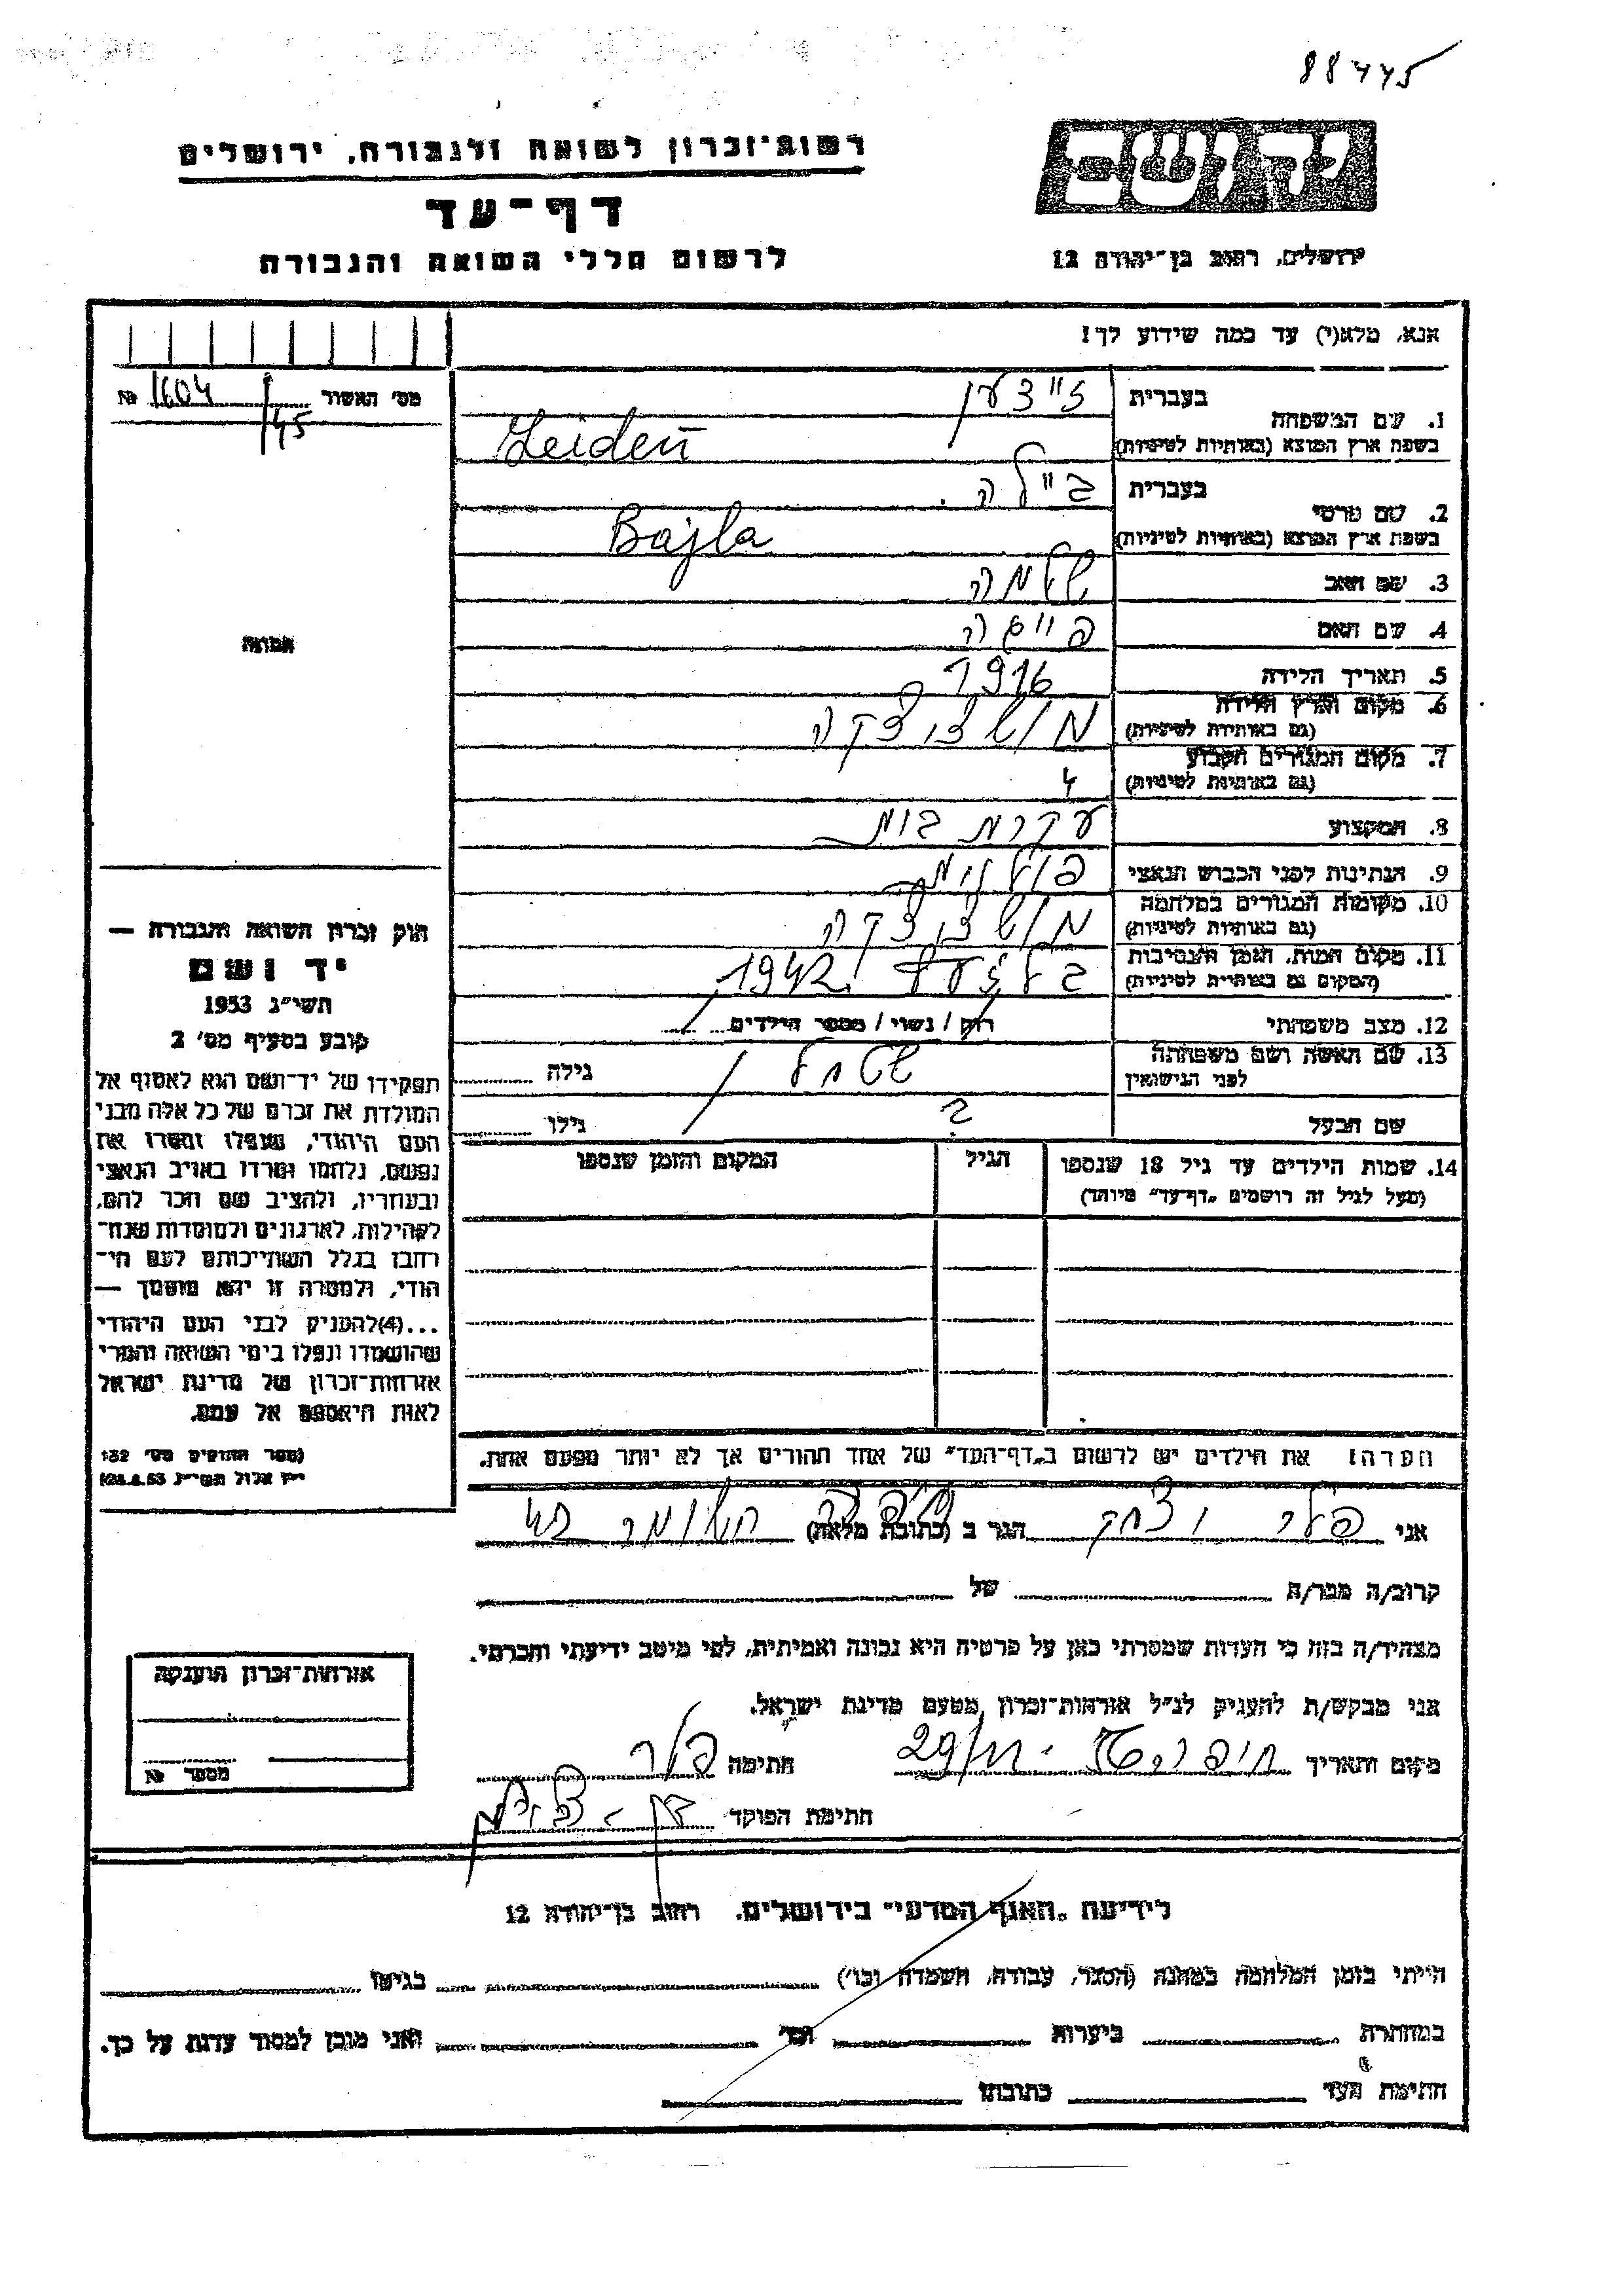 88445
יד ושם
רשות־זכרון לשואה ולגבורה, ירושלים
דף־עד
ירושלים, רחוב בן־יהודה 12
לרשום חללי השואה והגבורה
אנא, מלא(י) עד כמה שידוע לך!
מס' האשור № 1604/45
1. שם המשפחה
בעברית זיידען
בשפת ארץ המוצא (באותיות לטיניות) Zeiden
2. שם פרטי
בעברית ביילה
בשפת ארץ המוצא (באותיות לטיניות) Bajla
3. שם האב שלמה
4. שם האם
5. תאריך הלידה 1916
6. מקום וארץ הלידה
(גם באותיות לטיניות)
7. מקום המגורים הקבוע
(גם באותיות לטיניות)
8. המקצוע עקרת בית
9. הנתינות לפני הכבוש הנאצי פולנית
10. מקומות המגורים במלחמה
(גם באותיות לטיניות)
11. מקום המות, הזמן והנסיבות
(המקום גם באותיות לטיניות) בלזעץ 1942
12. מצב משפחתי רווק / נשוי / מספר הילדים
13. שם האשה ושם משפחתה
לפני הנישואין
גילה
שם הבעל ?
גילו
14. שמות הילדים עד גיל 18 שנספו
(מעל לגיל זה רושמים „דף־עד" מיוחד)
הגיל
המקום והזמן שנספו
אמונה
חוק זכרון השואה והגבורה —
יד ושם
תשי"ג 1953
קובע בסעיף מס' 2
תפקידו של יד־ושם הוא לאסוף אל
המולדת את זכרם של כל אלה מבני
העם היהודי, שנפלו ומסרו את
נפשם, נלחמו ומרדו באויב הנאצי
ובעוזריו, ולהציב שם וזכר להם,
לקהילות, לארגונים ולמוסדות שנח־
רבו בגלל השתייכותם לעם הי־
הודי, ולמטרה זו יהא מוסמך —
...(4)להעניק לבני העם היהודי
שהושמדו ונפלו בימי השואה והמרי
אזרחות־זכרון של מדינת ישראל
לאות היאספם אל עמם.
(ספר החוקים מס' 132
י"ז אלול תשי"ג 28.8.53)
הערה! את הילדים יש לרשום ב„דף־העד" של אחד ההורים אך לא יותר מפעם אחת.
אני יצחק הגר ב (כתובת מלאה)
קרוב/ה מכר/ה של
מצהיר/ה בזה כי העדות שמסרתי כאן על פרטיה היא נכונה ואמיתית, לפי מיטב ידיעתי והכרתי.
אני מבקש/ת להעניק לנ"ל אזרחות־זכרון מטעם מדינת ישראל.
מקום ותאריך חתימה
חתימת הפוקד
אזרחות־זכרון הוענקה
מספר №
לידיעת „האגף המדעי" בירושלים, רחוב בן־יהודה 12
הייתי בזמן המלחמה במחנה (הסגר, עבודה, השמדה וכו') בגיטו
במחתרת ביערות וכו' ואני מוכן למסור עדות על כך.
חתימת העד כתובתו